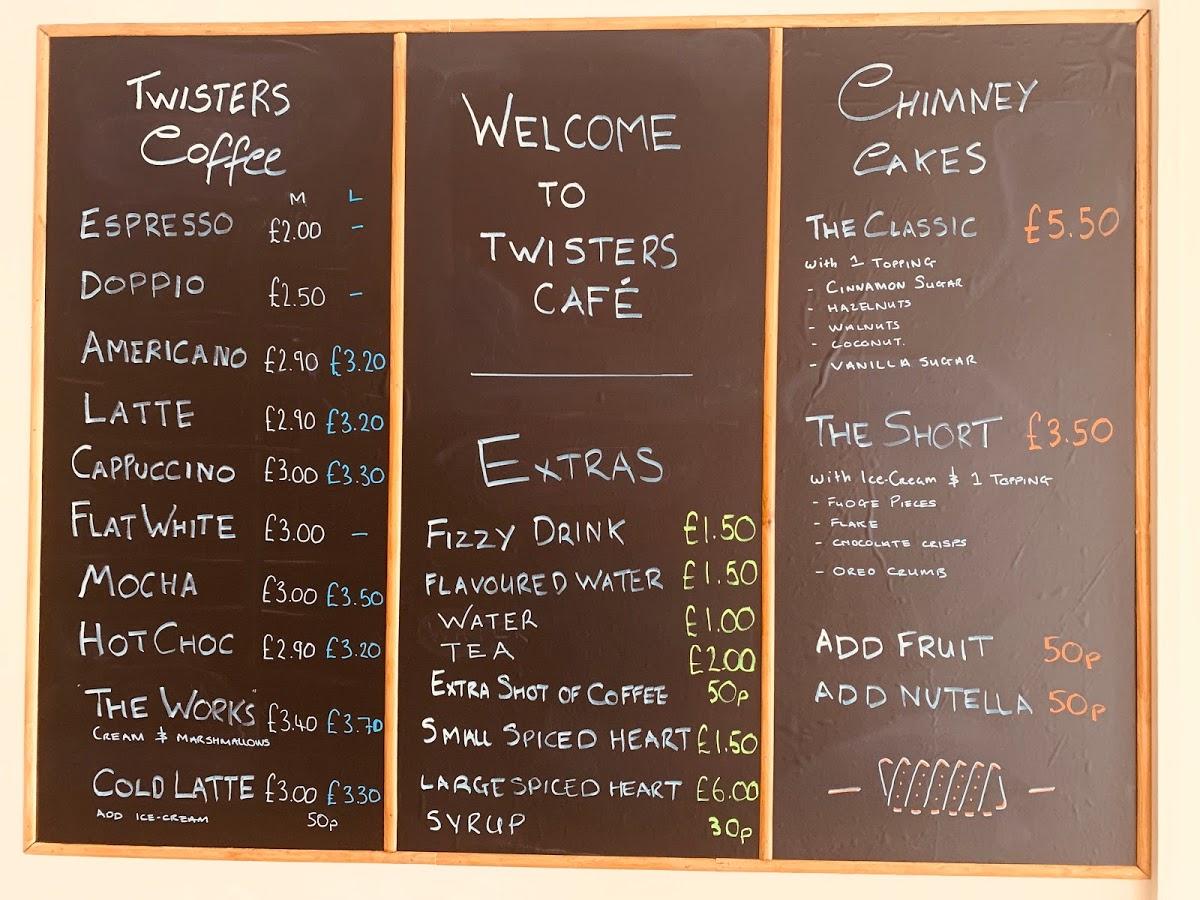 TWISTERS
Coffee
M L
ESPRESSO £2.00 -
DOPPIO £2.50 -
AMERICANO £2.90 £3.20
LATTE £2.90 £3.20
CAPPUCCINO £3.00 £3.30
FLAT WHITE £3.00 -
MOCHA £3.00 £3.50
HOT CHOC £2.90 £3.20
"THE WORKS" £3.40 £3.70
CREAM & MARSHMALLOWS
COLD LATTE £3.00 £3.30
ADD ICE-CREAM 50p
WELCOME
TO
TWISTERS
CAFÉ
EXTRAS
FIZZY DRINK £1.50
FLAVOURED WATER £1.50
WATER £1.00
TEA £2.00
EXTRA SHOT OF COFFEE 50p
SMALL SPICED HEART £1.50
LARGE SPICED HEART £6.00
SYRUP 30p
CHIMNEY
CAKES
THE CLASSIC £5.50
with 1 TOPPING
- CINNAMON SUGAR
- HAZELNUTS
- WALNUTS
- COCONUT.
- VANILLA SUGAR
THE SHORT £3.50
with Ice-Cream & 1 TOPPING
- FUDGE PIECES
- FLAKE
- CHOCOLATE CRISPS
- OREO CRUMB
ADD FRUIT 50p
ADD NUTELLA 50p